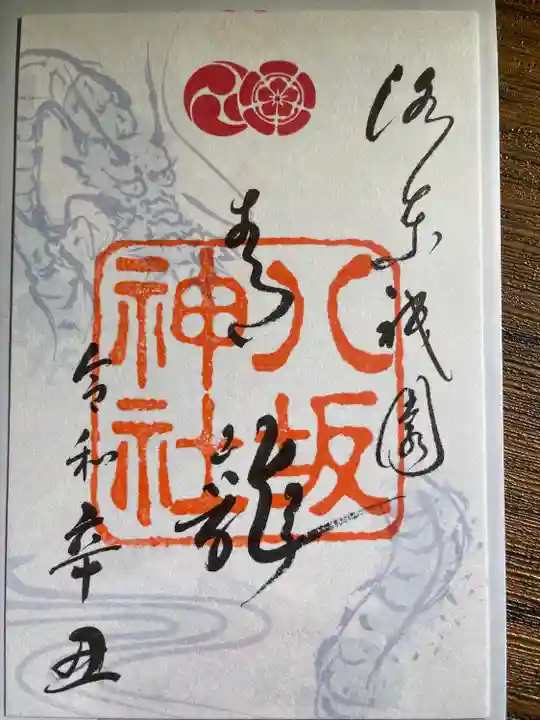 洛東祇園
青龍
八坂
神社
令和辛丑